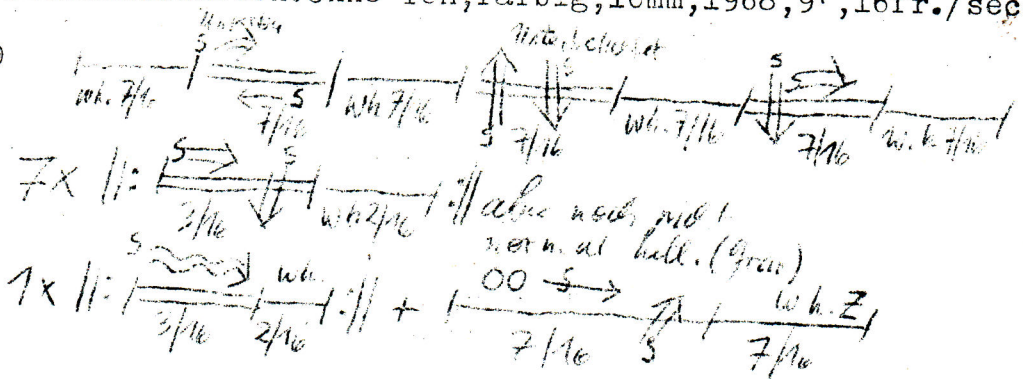 farbig,16mm,1968,9',16fr./sec
S S
wh. 7/16 7/16 S wh 7/16 S 7/16 wh. 7/16 S S 7/16 w.h 7/16
7x ||: S S 3/16 wh 2/16 :|| aber noch nicht
normal hell. (Grau)
1x ||: S 3/16 wh. 2/16 :|| + OO S 7/16 S wh. Z 7/16